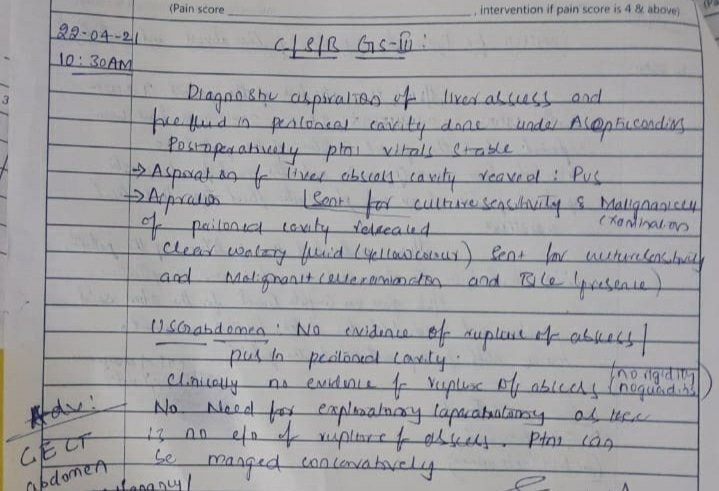 (Pain score , intervention if pain score is 4 & above)
22-04-21
10:30AM
C/S/B GS-II:
Diagnostic aspiration of liver abscess and
free fluid in peritoneal cavity done under Aseptic
Postoperatively ptns vitals stable
→ Aspiration of liver abscess cavity : Pus
→ Aspiration Sent for culture sensitivity & Malignancy
examination
of cavity revealed
clear watery fluid (yellow colour) Sent for culture sensitivity
and Malignant cell examination and Bile (presence)
USG abdomen : No evidence of rupture of abscess /
pus in peritoneal cavity.
Clinically no evidence of rupture of abscess (no rigidity
no guarding)
No Need for exploratory laparotomy as
is no e/o of rupture of abscess. Ptns can
be manged conservatively
Adv:
CECT
abdomen